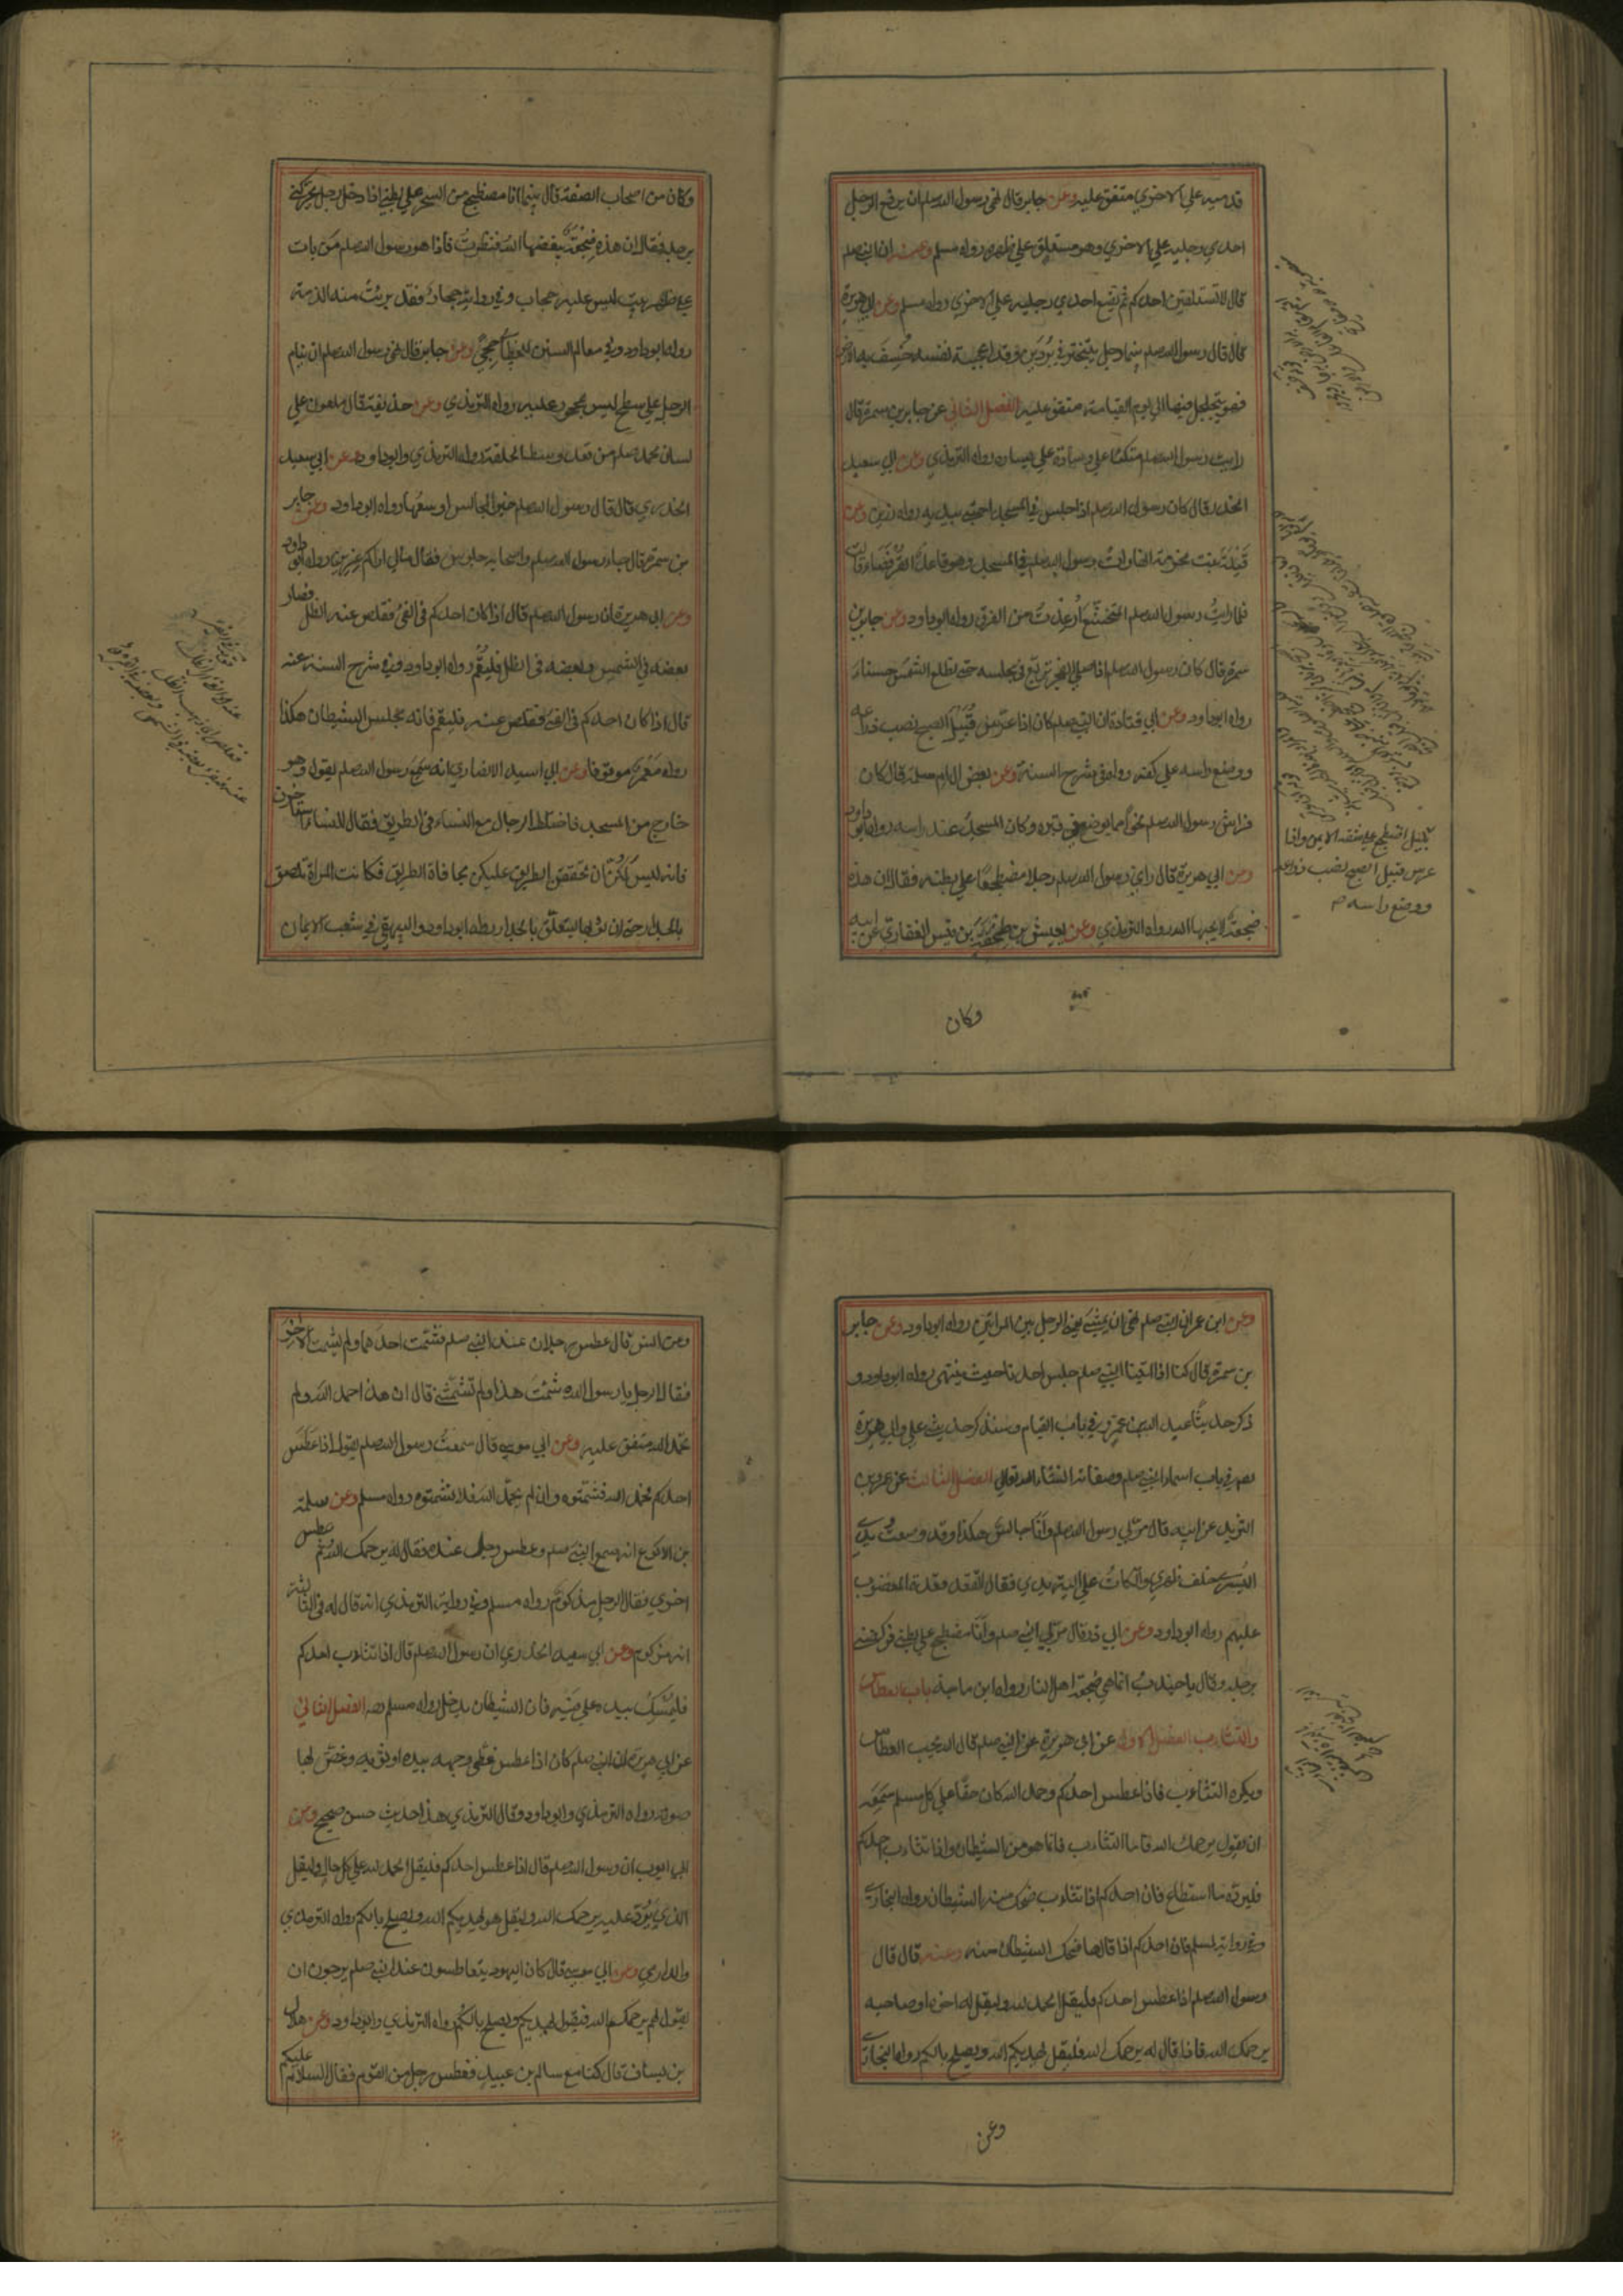 قدميه علي الاخري متفق عليه وعن جابر قال نهي رسول الله صلعم ان يرفع الرجل
احدي رجليه علي الاخري وهو مستلق علي ظهره رواه مسلم وعنه ان النبي صلعم
قال لا تستلقين احدكم ثم يضع احدي رجليه علي الاخري رواه مسلم وعن ابي هريرة
قال قال رسول الله صلعم بينما رجل يتبختر في بردين وقد اعجبته نفسه خسف به الارض
فهو يتجلجل فيها الي يوم القيامة متفق عليه الفصل الثاني عن جابر بن سمرة قال
رايت رسول الله صلعم متكئا علي وسادة علي يساره رواه الترمذي وعن ابي سعيد
الخدري قال كان رسول الله صلعم اذا جلس في المسجد احتبي بيديه رواه رزين وعن
قيلة بنت مخرمة انها رات رسول الله صلعم في المسجد وهو قاعد القرفصاء قالت
فلما رايت رسول الله صلعم المتخشع ارعدت من الفرق رواه ابوداود وعن جابر بن
سمرة قال كان رسول الله صلعم اذا صلي الفجر تربع في مجلسه حتي تطلع الشمس حسناء
رواه ابوداود وعن ابي قتادة ان النبي صلعم كان اذا عرس قبيل الصبح نصب ذراعه
ووضع راسه علي كفه رواه في شرح السنة وعن بعض ال ام سلمة قال كان
فراش رسول الله صلعم نحوا مما يوضع في قبره وكان المسجد عند راسه رواه ابوداود
وعن ابي هريرة قال راي رسول الله صلعم رجلا مضطجعا علي بطنه فقال ان هذه
ضجعة لا يحبها الله رواه الترمذي وعن يعيش بن طخفة بن قيس الغفاري عن ابيه
بليل اضطجع علي شقه الايمن واذا
عرس قبيل الصبح نصب ذراعه
ووضع راسه
وكان
وكان من اصحاب الصفة قال بينما انا مضطجع من السحر علي بطني اذا رجل يحركني
برجله فقال ان هذه ضجعة يبغضها الله فنظرت فاذا هو رسول الله صلعم من بات
علي ظهر بيت ليس عليه حجاب وفي رواية حجار فقد برئت منه الذمة
رواه ابوداود وفي معالم السنن للخطابي حجي وعن جابر قال نهي رسول الله صلعم ان ينام
الرجل علي سطح ليس بمحجور عليه رواه الترمذي وعن حذيفة قال ملعون علي
لسان محمد صلعم من قعد وسط الحلقة رواه الترمذي وابوداود وعن ابي سعيد
الخدري قال قال رسول الله صلعم خير المجالس اوسعها رواه ابوداود وعن جابر
بن سمرة قال جاء رسول الله صلعم واصحابه جلوس فقال مالي اراكم عزين رواه ابوداود
وعن ابي هريرة ان رسول الله صلعم قال اذا كان احدكم في الفئ فقلص عنه الظل فصار
بعضه في الشمس وبعضه في الظل فليقم رواه ابوداود وفي شرح السنة عنه
قال اذا كان احدكم في الفئ فقلص عنه فليقم فانه مجلس الشيطان هكذا
رواه معمر موقوفا وعن ابي اسيد الانصاري انه سمع رسول الله صلعم يقول وهو
خارج من المسجد فاختلط الرجال مع النساء في الطريق فقال للنساء استاخرن
فانه ليس لكن ان تحققن الطريق عليكن بحافات الطريق فكانت المراة تلصق
بالجدار حتي ان ثوبها ليتعلق بالجدار رواه ابوداود والبيهقي في شعب الايمان
وعن ابن عمر ان النبي صلعم نهي ان يمشي يعني الرجل بين المراتين رواه ابوداود وعن جابر
بن سمرة قال كنا اذا اتينا النبي صلعم جلس احدنا حيث ينتهي رواه ابوداود و
ذكر حديثا عبد الله بن عمرو في باب القيام وسنذكر حديث علي وابي هريرة
في باب اسماء النبي صلعم وصفاته ان شاء الله تعالي الفصل الثالث عن عمرو بن
الشريد عن ابيه قال مر بي رسول الله صلعم وانا جالس هكذا وقد وضعت يدي
اليسري خلف ظهري واتكات علي الية يدي فقال اتقعد قعدة المغضوب
عليهم رواه ابوداود وعن ابي ذر قال مر بي النبي صلعم وانا مضطجع علي بطني فركضني
برجله وقال يا جندب انما هي ضجعة اهل النار رواه ابن ماجة باب العطاس
والتثاوب الفصل الاول عن ابي هريرة عن النبي صلعم قال الله يحب العطاس
ويكره التثاوب فاذا عطس احدكم وحمد الله كان حقا علي كل مسلم سمعه
ان يقول يرحمك الله فاما التثاوب فانما هو من الشيطان فاذا تثاوب احدكم
فليرده ما استطاع فان احدكم اذا تثاوب ضحك منه الشيطان رواه البخاري
وفي رواية لمسلم فان احدكم اذا قال ها ضحك الشيطان منه وعنه قال قال
رسول الله صلعم اذا عطس احدكم فليقل الحمد لله وليقل له اخوه او صاحبه
يرحمك الله فاذا قال له يرحمك الله فليقل يهديكم الله ويصلح بالكم رواه البخاري
وعن
وعن انس قال عطس رجلان عند النبي صلعم فشمت احدهما ولم يشمت الاخر
فقال الرجل يا رسول الله شمت هذا ولم تشمتني قال ان هذا احمد الله ولم
تحمد الله متفق عليه وعن ابي موسي قال سمعت رسول الله صلعم يقول اذا عطس
احدكم فحمد الله فشمتوه وان لم يحمد الله فلا تشمتوه رواه مسلم وعن سلمة
بن الاكوع انه سمع النبي صلعم وعطس رجل عنده فقال له يرحمك الله ثم عطس
اخري فقال الرجل مزكوم رواه مسلم وفي رواية الترمذي انه قال له في الثالثة
انه مزكوم وعن ابي سعيد الخدري ان رسول الله صلعم قال اذا تثاوب احدكم
فليمسك بيده علي فيه فان الشيطان يدخل رواه مسلم الفصل الثاني
عن ابي هريرة ان النبي صلعم كان اذا عطس غطي وجهه بيده او ثوبه وغض بها
صوته رواه الترمذي وابوداود وقال الترمذي هذا حديث حسن صحيح وعن
ابي ايوب ان رسول الله صلعم قال اذا عطس احدكم فليقل الحمد لله علي كل حال وليقل
الذي يرد عليه يرحمك الله وليقل هو يهديكم الله ويصلح بالكم رواه الترمذي
والدارمي وعن ابي موسي قال كان اليهود يتعاطسون عند النبي صلعم يرجون ان
يقول لهم يرحمكم الله فيقول يهديكم ويصلح بالكم رواه الترمذي وابوداود وعن هلال
بن يساف قال كنا مع سالم بن عبيد فعطس رجل من القوم فقال السلام عليكم